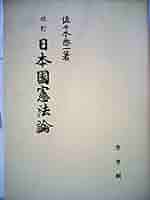 佐々木惣一著
改訂
日本國憲法論
有斐閣